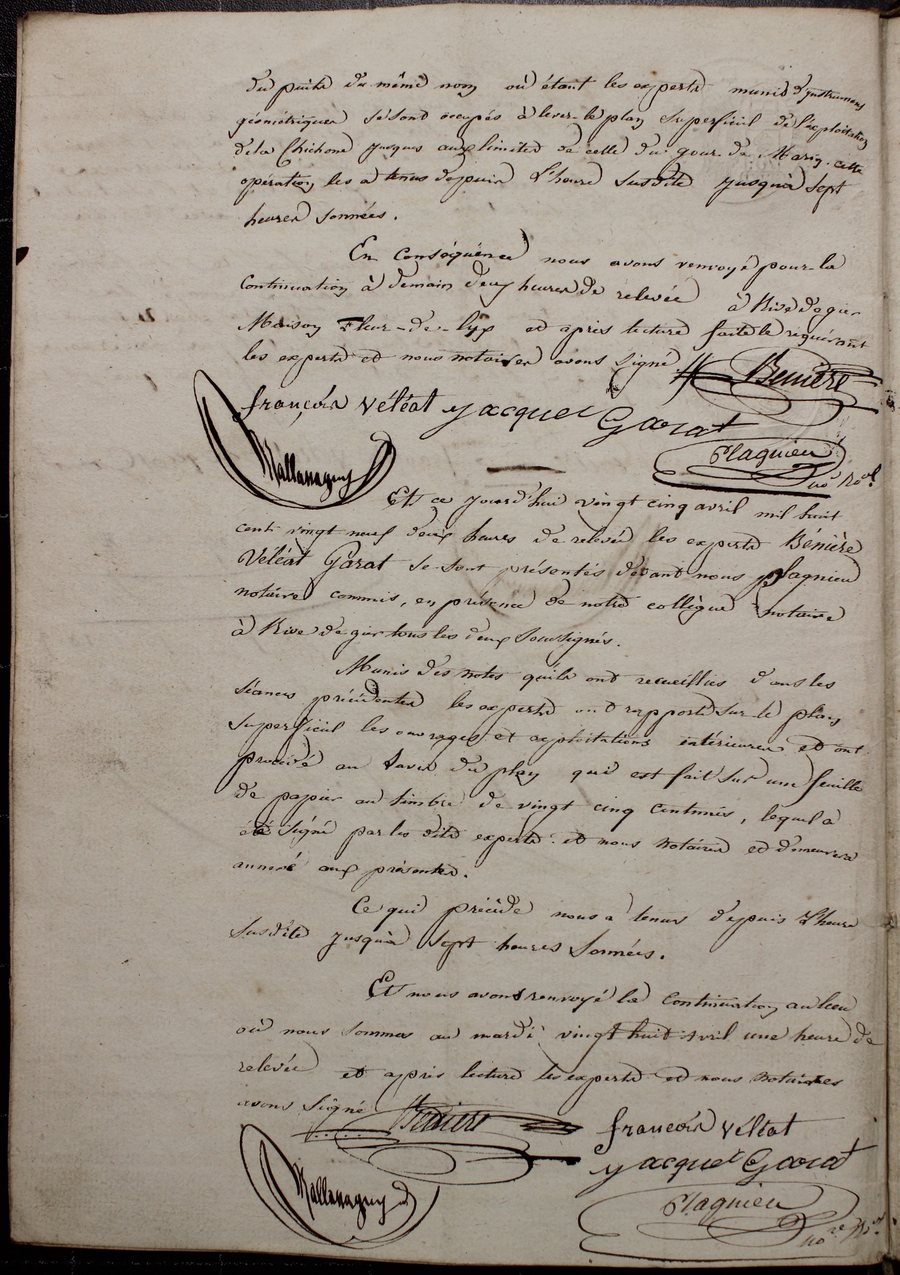 du puits du même nom où étant les experts munis d'instrumens
géométriques se sont occupés à lever le plan superficiel de l'exploitation
de la Chichone jusques aux limites de celle du jour de Marin. cette
opération les a tenus depuis l'heure susdite jusqu'à sept
heures sonnées.
En conséquence nous avons renvoyé pour la
continuation à demain deux heures de relevée à Rive de gier
Maison Fleur-de-lys et après lecture faite le requérant
les experts et nous notaires avons signé Benière
françois véléat jacque Garat
Plagnieu
no.re Ro.al
Et ce jourd'hui vingt cinq avril mil huit
cent vingt neuf deux heures de relevée les experts Benière
Véléat Garat se sont présentés devant nous plagnieu
notaire commis, en présence de notre collègue notaire
à Rive de gier tous les deux soussignés.
Munis des notes qu'ils ont recueillies dans les
séances précédentes les experts ont rapporté sur le plan
superficiel les ouvrages et exploitations intérieures et ont
procédé au lavis du plan qui est fait sur une feuille
de papier au timbre de vingt cinq centimes, lequel a
été signé par les dits experts et nous notaires et demeurera
annexé aux présentes.
Ce qui précède nous a tenus depuis l'heure
susdite jusqu'à sept heures sonnées.
Et nous avons renvoyé la continuation au lieu
où nous sommes au mardi vingt huit avril une heure de
relevée et après lecture les experts et nous notaires
avons signé Benière françois véléat
jacque Garat
Plagnieu
no.re